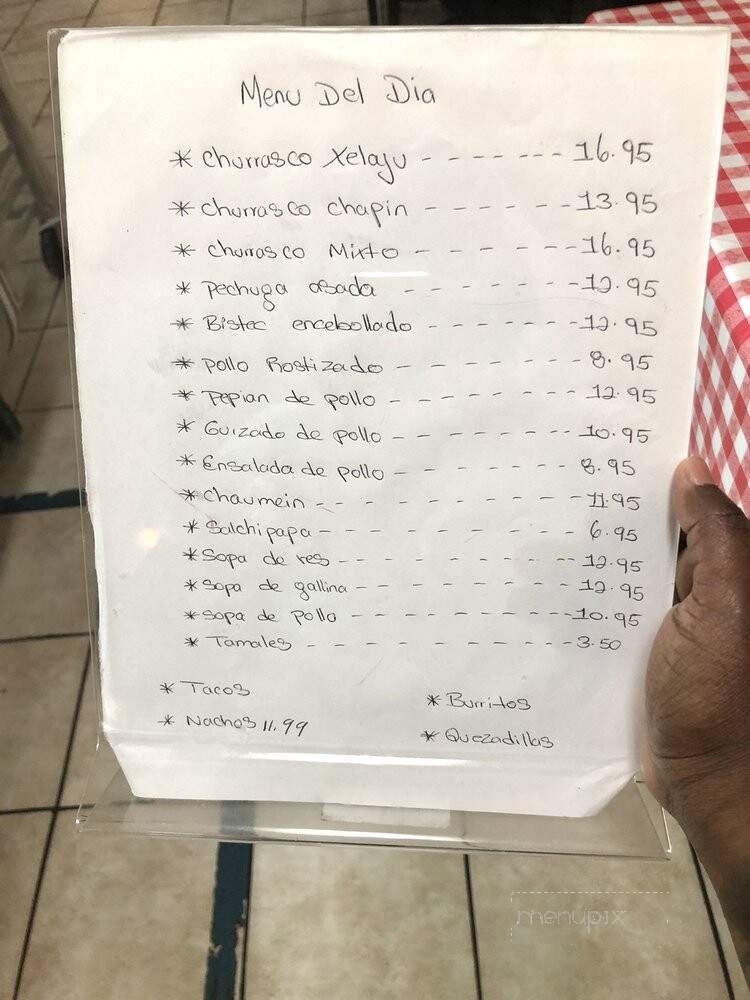 Menu Del Dia
* Churrasco Xelaju - - - - - - - 16.95
* Churrasco chapin - - - - - - 13.95
* Churrasco Mixto - - - - - - 16.95
* Pechuga asada - - - - - - - 12.95
* Bistec encebollado - - - - - - 12.95
* Pollo Rostizado - - - - - - - 8.95
* Pepian de pollo - - - - - - - 12.95
* Guizado de pollo - - - - - - - 10.95
* Ensalada de pollo - - - - - - - 8.95
* Chaumein - - - - - - - - - - 11.95
* Salchipapa - - - - - - - - - - 6.95
* Sopa de res - - - - - - - - - - 12.95
* Sopa de gallina - - - - - - - - - 12.95
* Sopa de Pollo - - - - - - - - - - 10.95
* Tamales - - - - - - - - - - - 3.50
* Tacos
* Burritos
* Nachos 11.99
* Quezadillas
menupix